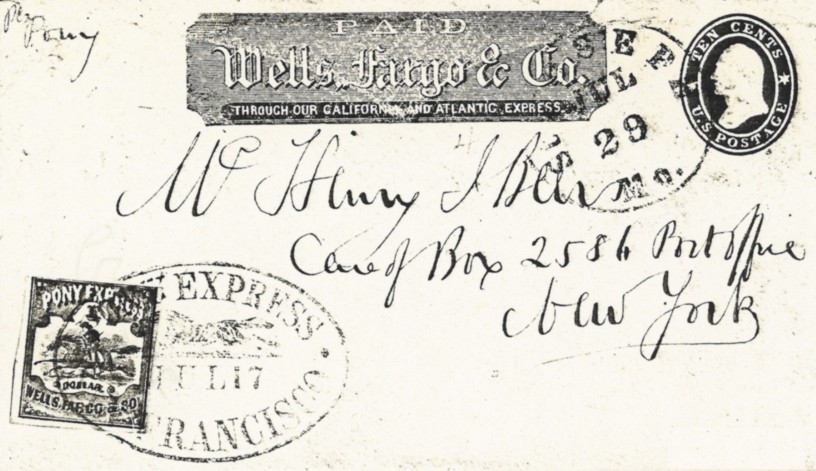 Per
Pony
PAID
Wells, Fargo & Co.
THROUGH OUR CALIFORNIA AND ATLANTIC EXPRESS.
TEN CENTS
U.S POSTAGE
JUL
29
MO.
Mr Henry J
Care of Box 2584 Post office
New York
PONY EXPRESS
DOLLAR
WELLS, FARGO & CO
EXPRESS
JUL 17
FRANCISCO